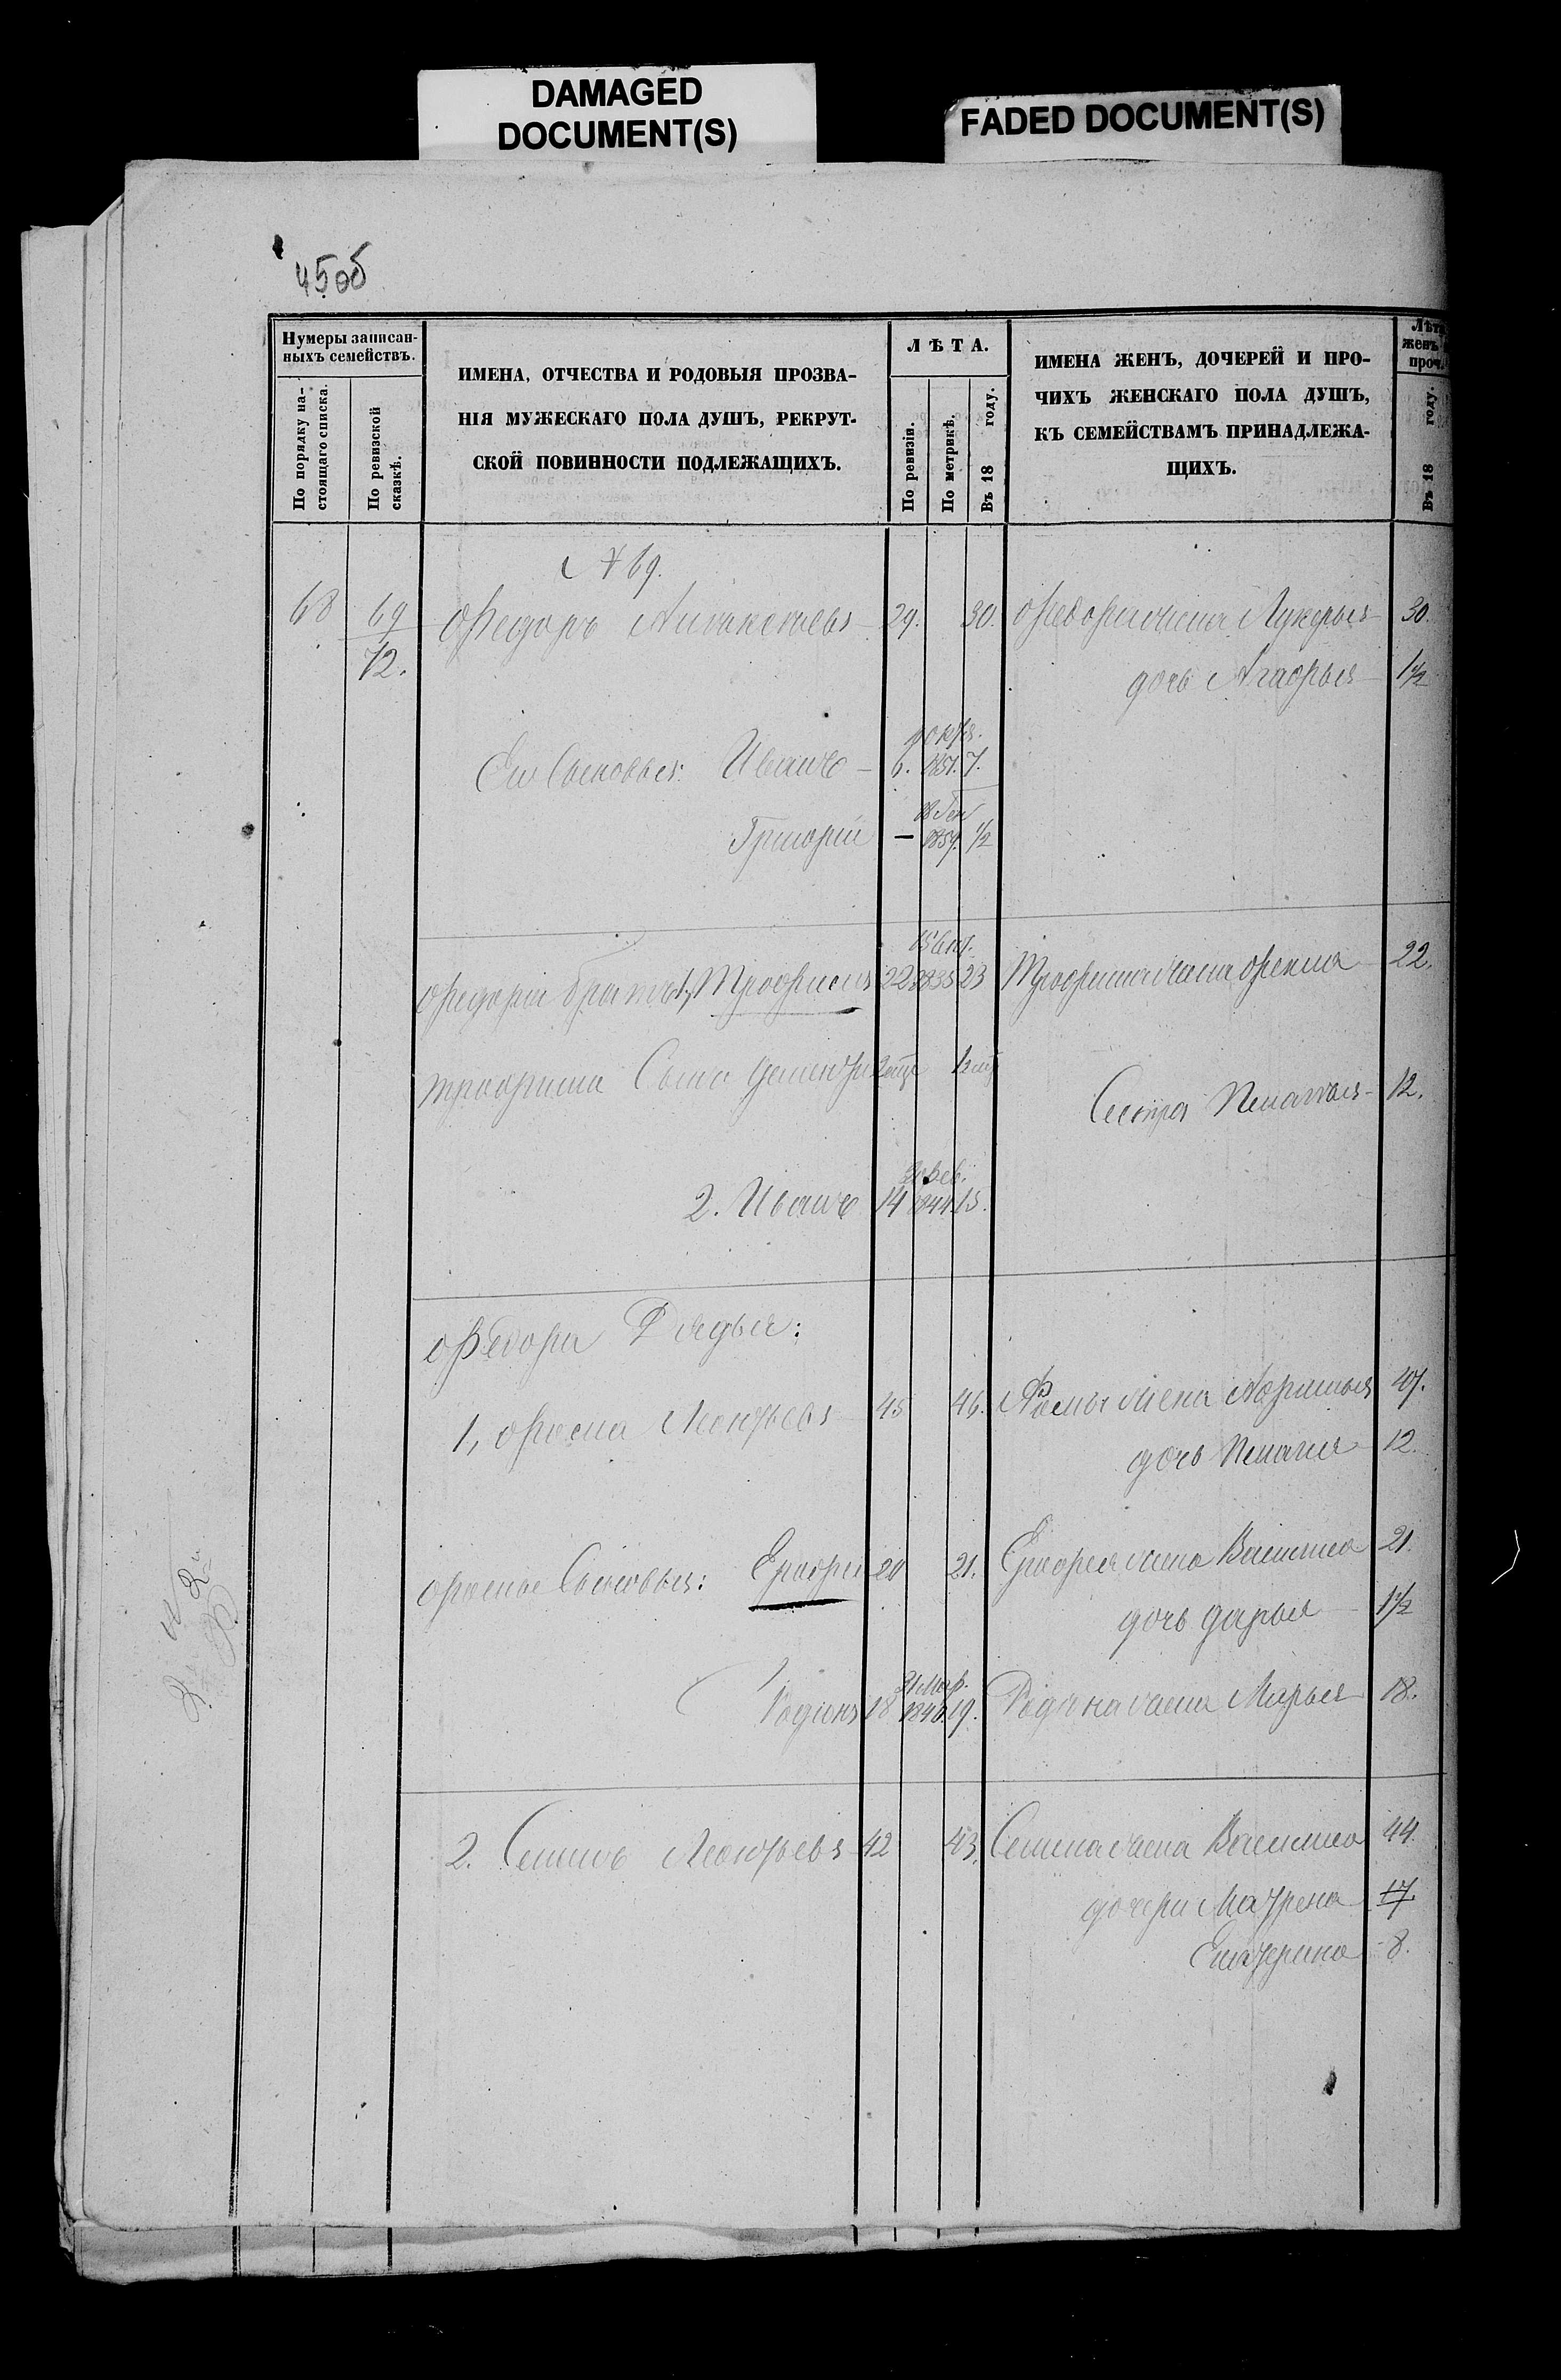 DAMAGED
DOCUMENT(S)
FADED DOCUMENT(S)
45об
Нумеры записан-
ныхъ семействъ.
По порядку на-
стоящаго списка.
По ревизской
сказкѣ.
ИМЕНА, ОТЧЕСТВА И РОДОВЫЯ ПРОЗВА-
НІЯ МУЖЕСКАГО ПОЛА ДУШЪ, РЕКРУТ-
СКОЙ ПОВИННОСТИ ПОДЛЕЖАЩИХЪ.
ЛѢТА.
По ревизіи.
По метрикѣ.
Въ 18 году.
ИМЕНА ЖЕНЪ, ДОЧЕРЕЙ И ПРО-
ЧИХЪ ЖЕНСКАГО ПОЛА ДУШЪ,
КЪ СЕМЕЙСТВАМЪ ПРИНАДЛЕЖА-
ЩИХЪ.
Лѣта
женъ
проч.
Въ 18 году.
№ 69.
68 69 Федоръ 29. 30. Федора жена Лукерья 30.
72. дочь Агафья 1½
Его Сыновья: Иванъ 6. 1851. 7.
Григорій — ½
Федора братья, 1, Трофимъ 22 1835 23 Трофима жена Фекла 22.
Трофима Сынъ
Сестра Пелагья 12.
2. Иванъ 14 1844 15.
Федора Дядья:
1, Фома Леонтьевъ 45 46. Фомы жена 47.
дочь Пелагея 12.
Фомы Сыновья: Ерофей 20 21. Ерофея жена Василиса 21.
дочь Дарья 1½
21 Мар.
Родіонъ 18 1840. 19. Родіона жена Марья 18.
2. Семенъ Леонтьевъ 42 43. Семена жена Василиса 44.
дочери Матрена 17.
Екатерина 8.